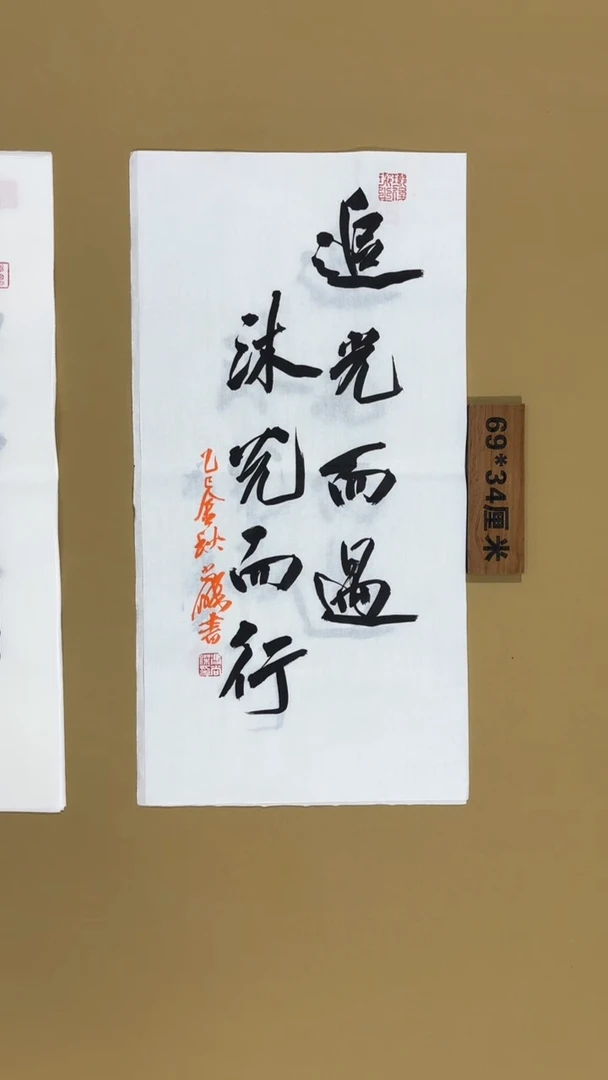 追光而遇
沐光而行
乙巳金秋
书
69*34厘米